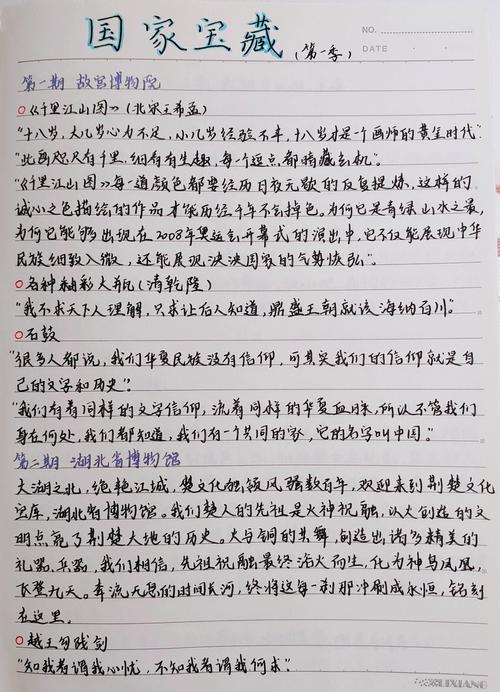 国家宝藏(第一季)
NO.
DATE
第一期 故宫博物院
○《千里江山图》(北宋王希孟)
"十八岁,大几岁心力不足,小几岁经验不丰,十八岁才是一个画师的黄金时代"
"此画咫尺有千里,细有有生趣,每个短点都暗藏玄机"。
"《千里江山图》每一道颜色都要经历日夜无歇的反复提炼,这样的
诚心之色描绘的作品才能历经千年不会掉色,为何它是青绿山水之最,
为何它能够出现在2008年奥运会开幕式的演出中,它不仅能展现中华
民族细致入微,还能展现泱泱国家的气势恢弘"。
○各种釉彩大瓶(清乾隆)
"我不求天下人理解,只求让后人知道,鼎盛王朝就该海纳百川"。
○石鼓
"很多人都说,我们华夏民族没有信仰,可其实我们的信仰就是自
己的文字和历史"。
"我们有着同样的文字信仰,流着同样的华夏血脉,所以不管我们
身在何处,我们都知道,我们有一个共同的家,它的名字叫中国。"
第二期 湖北省博物馆
大湖之北,绝艳江城,楚文化独领风骚数百年,欢迎来到荆楚文化
宝库,湖北省博物馆。我们楚人的先祖是火神祝融,以火创造的文
明点亮了荆楚大地的历史。火与铜的共舞,创造出诸多精美的
礼器、兵器,我们相信,先祖祝融最终浴火而生,化为神鸟凤凰,
飞登九天。奔流无息的时间长河,终将这每一刹那冲刷成永恒,铭刻
在这里。
○越王勾践剑
"知我者谓我心忧,不知我者谓我何求"。
LIXIANG